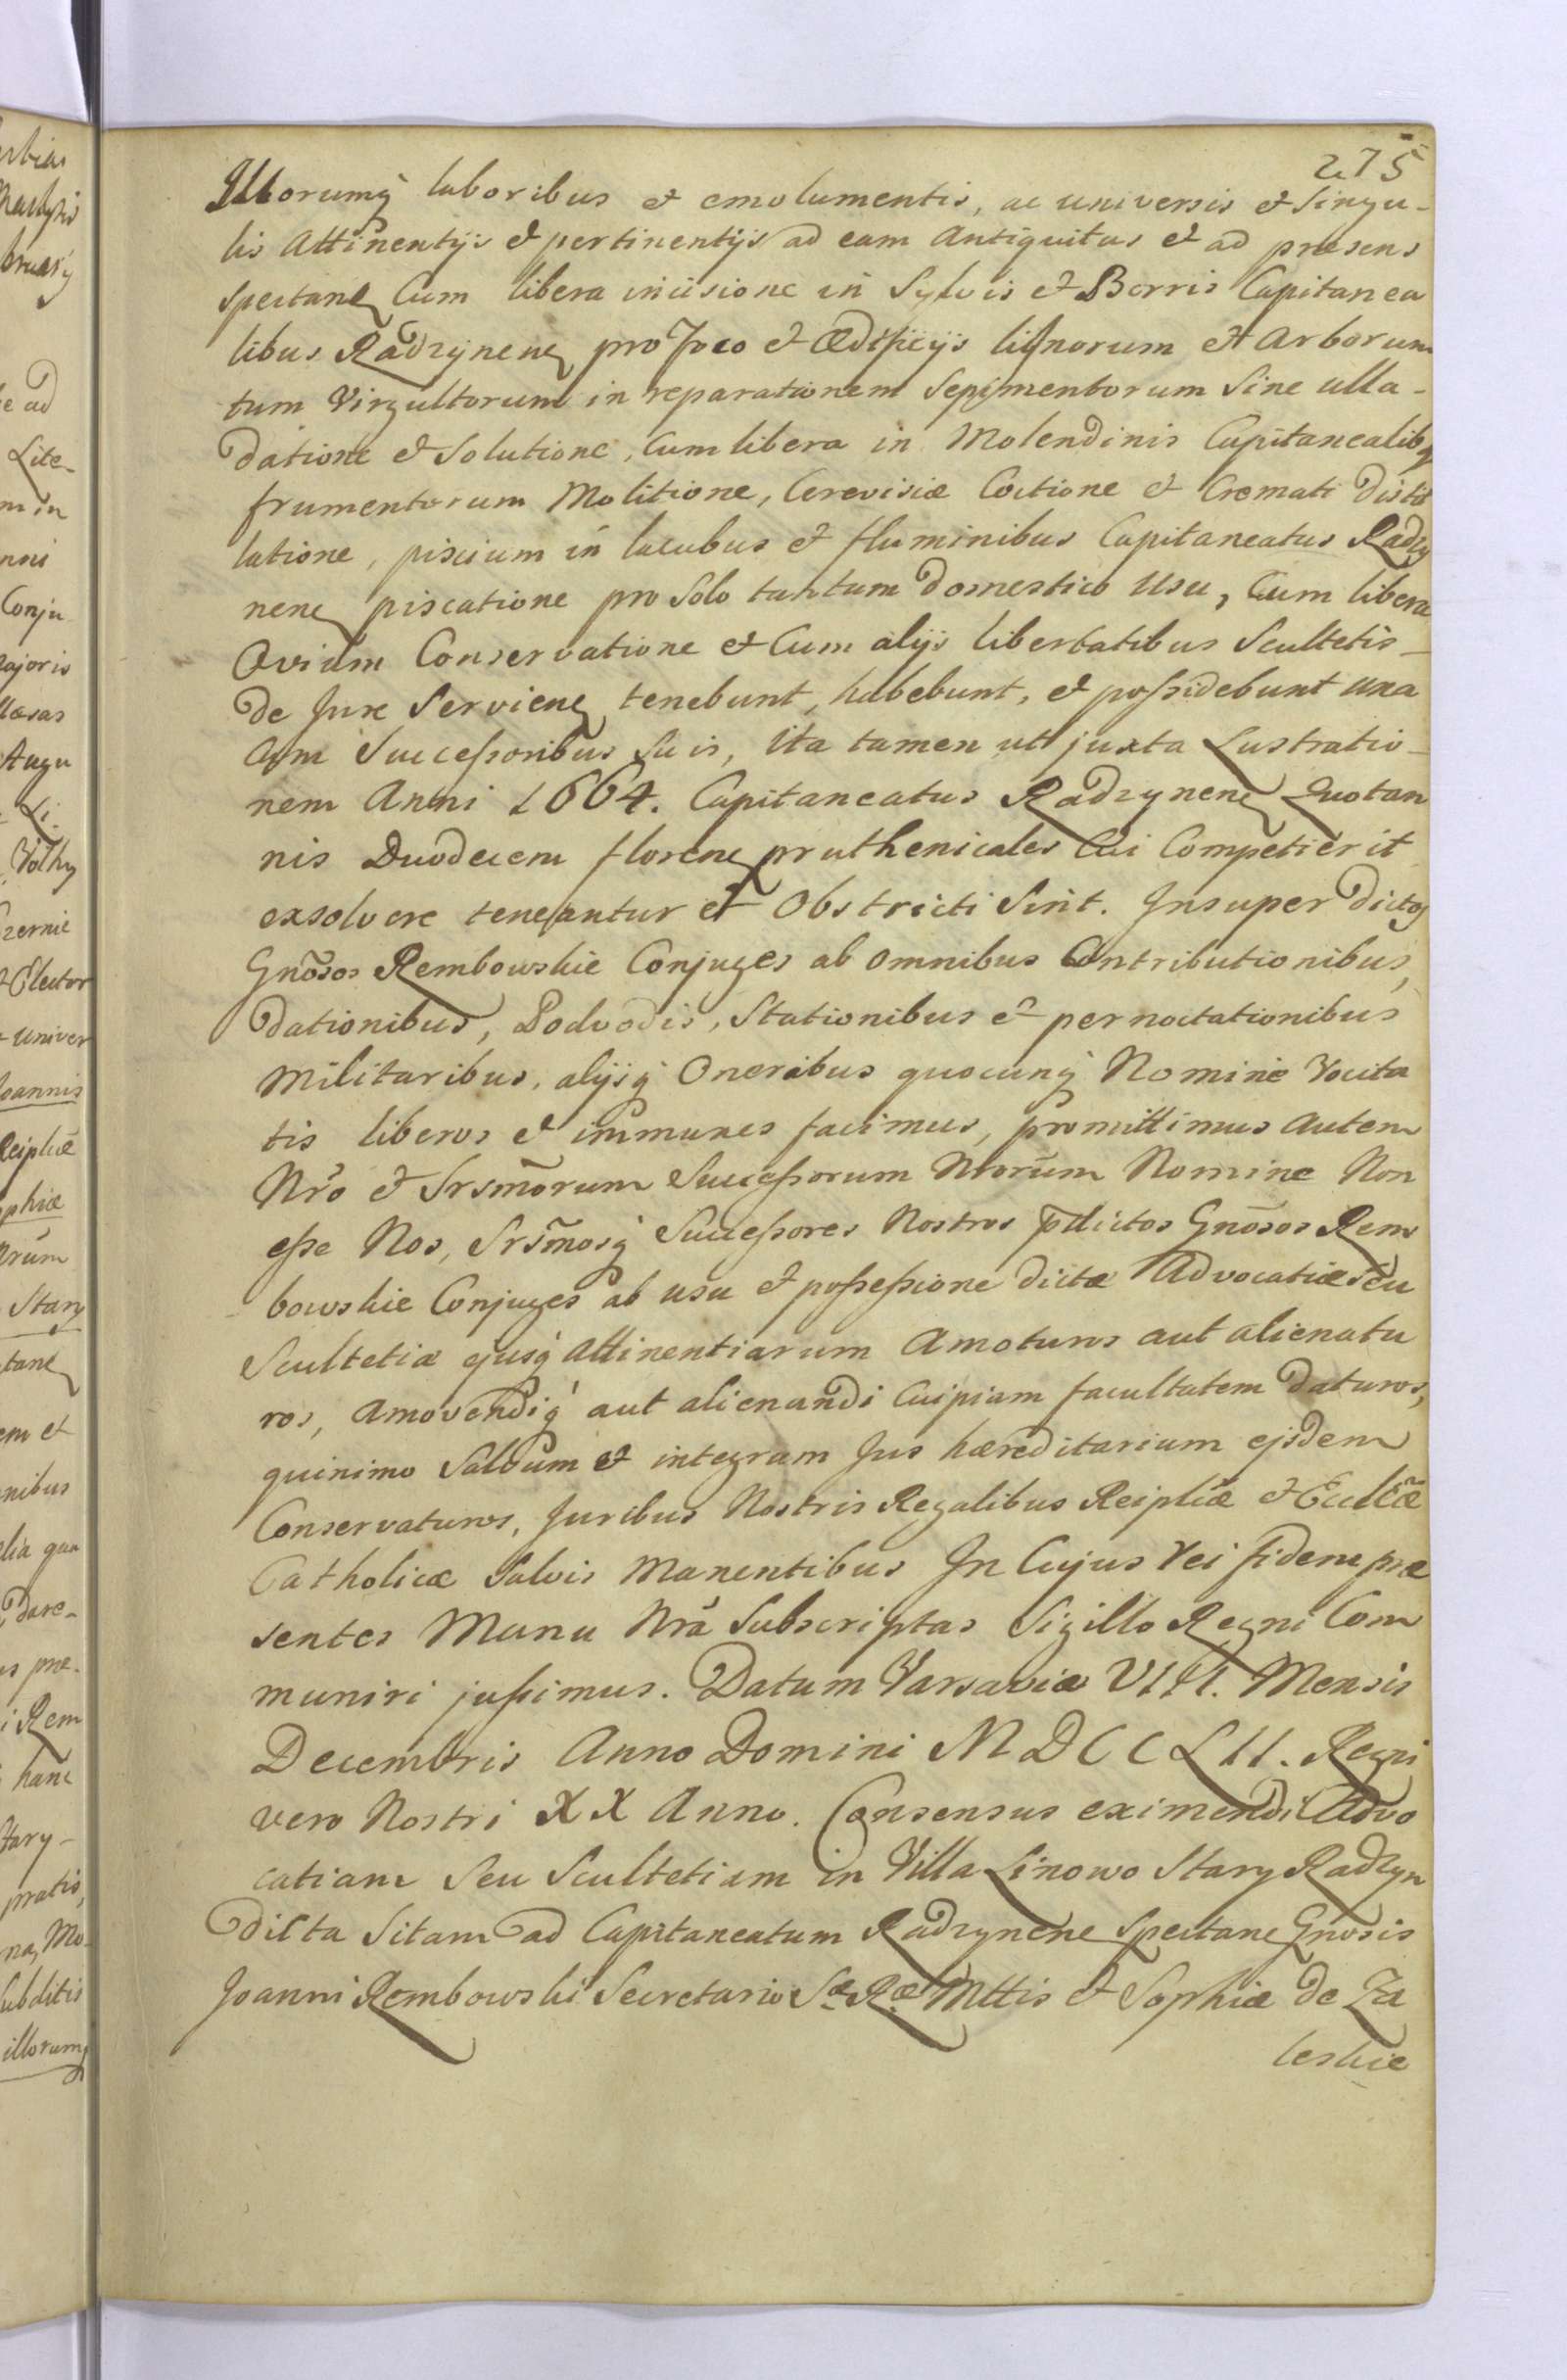 275
Illorumq laboribus et emolumentis, ac universis et Singu-
lis Attinentijs et pertinentijs ad eam Antiquitus et ad presens
Spectanē Cum libera incisione in Sylvis et Borris Capitanea
libus Radzynenē pro foco et Ædificijs lignorum et Arborum
tum Virgultorum in reparationem Sepimentorum Sine ulla-
datione et Solutione, Cum libera in Molendinis Capitanealibq
frumentorum Molitione, Cerevisiæ Coctione et Cremati Distil
latione, piscium in lacubus et fluminibus Capitaneatus Radzy
nenē piscatione pro Solo tantum Domestico Usu, Cum libera
Ovium Conservatione et Cum alijs libertatibus Scultetis-
de Jure Servienē tenebunt, habebunt, et possidebunt una
Cum Successoribus Suis, Ita tamen ut juxta Lustratio-
nem Anni 1664. Capitaneatus Radzynenē Quotan
nis Duodecem florenē pruthenicales Cui Competierit
exsolvere teneantur et Obstricti Sint. Insuper Dictos
Gnõsos Rembowskie Conjuges ab omnibus Contributionibus,
Dationibus, Podvodis, Stationibus et pernoctationibus
Militaribus, alijsq Oneribus quocunq Nomine Vocita
tis liberos et immunes facimus, promittimus autem
Nrõ et Srsmõrum Successorum Nrorum Nomine Non
esse Nos, Srsmõsq Successores Nostros pdictos Gnõsos Rem
bowskie Conjuges ab usu et possessione dictæ Advocatiæ Seu
Scultetiæ ejusq attinentiarum Amoturos aut alienatu
ros, amovendiq aut alienandi Cuipiam facultatem Daturos,
quinimo Salvum et integrum Jus hæreditarium ejsdem
Conservaturos, Juribus Nostris Regalibus Reiplicæ et Ecclæ
Catholicæ Salvis Manentibus In Cujus rei fidem præ
sentes Manu Nrã Subscriptas Sigillo Regni Com
muniri jussimus. Datum Varsaviæ VIII. Mensis
Decembris Anno Domini MDCCLII. Regni
vero Nostri XX Anno. Consensus eximendi Advo
catiam Seu Scultetiam in Villa Linowo Stary Radzyn
dicta Sitam ad Capitaneatum Radzynenē Spectanē Gnosis
Joanni Rembowski Secretario Sæ Ræ Mttis et Sophiæ de Za
leskie